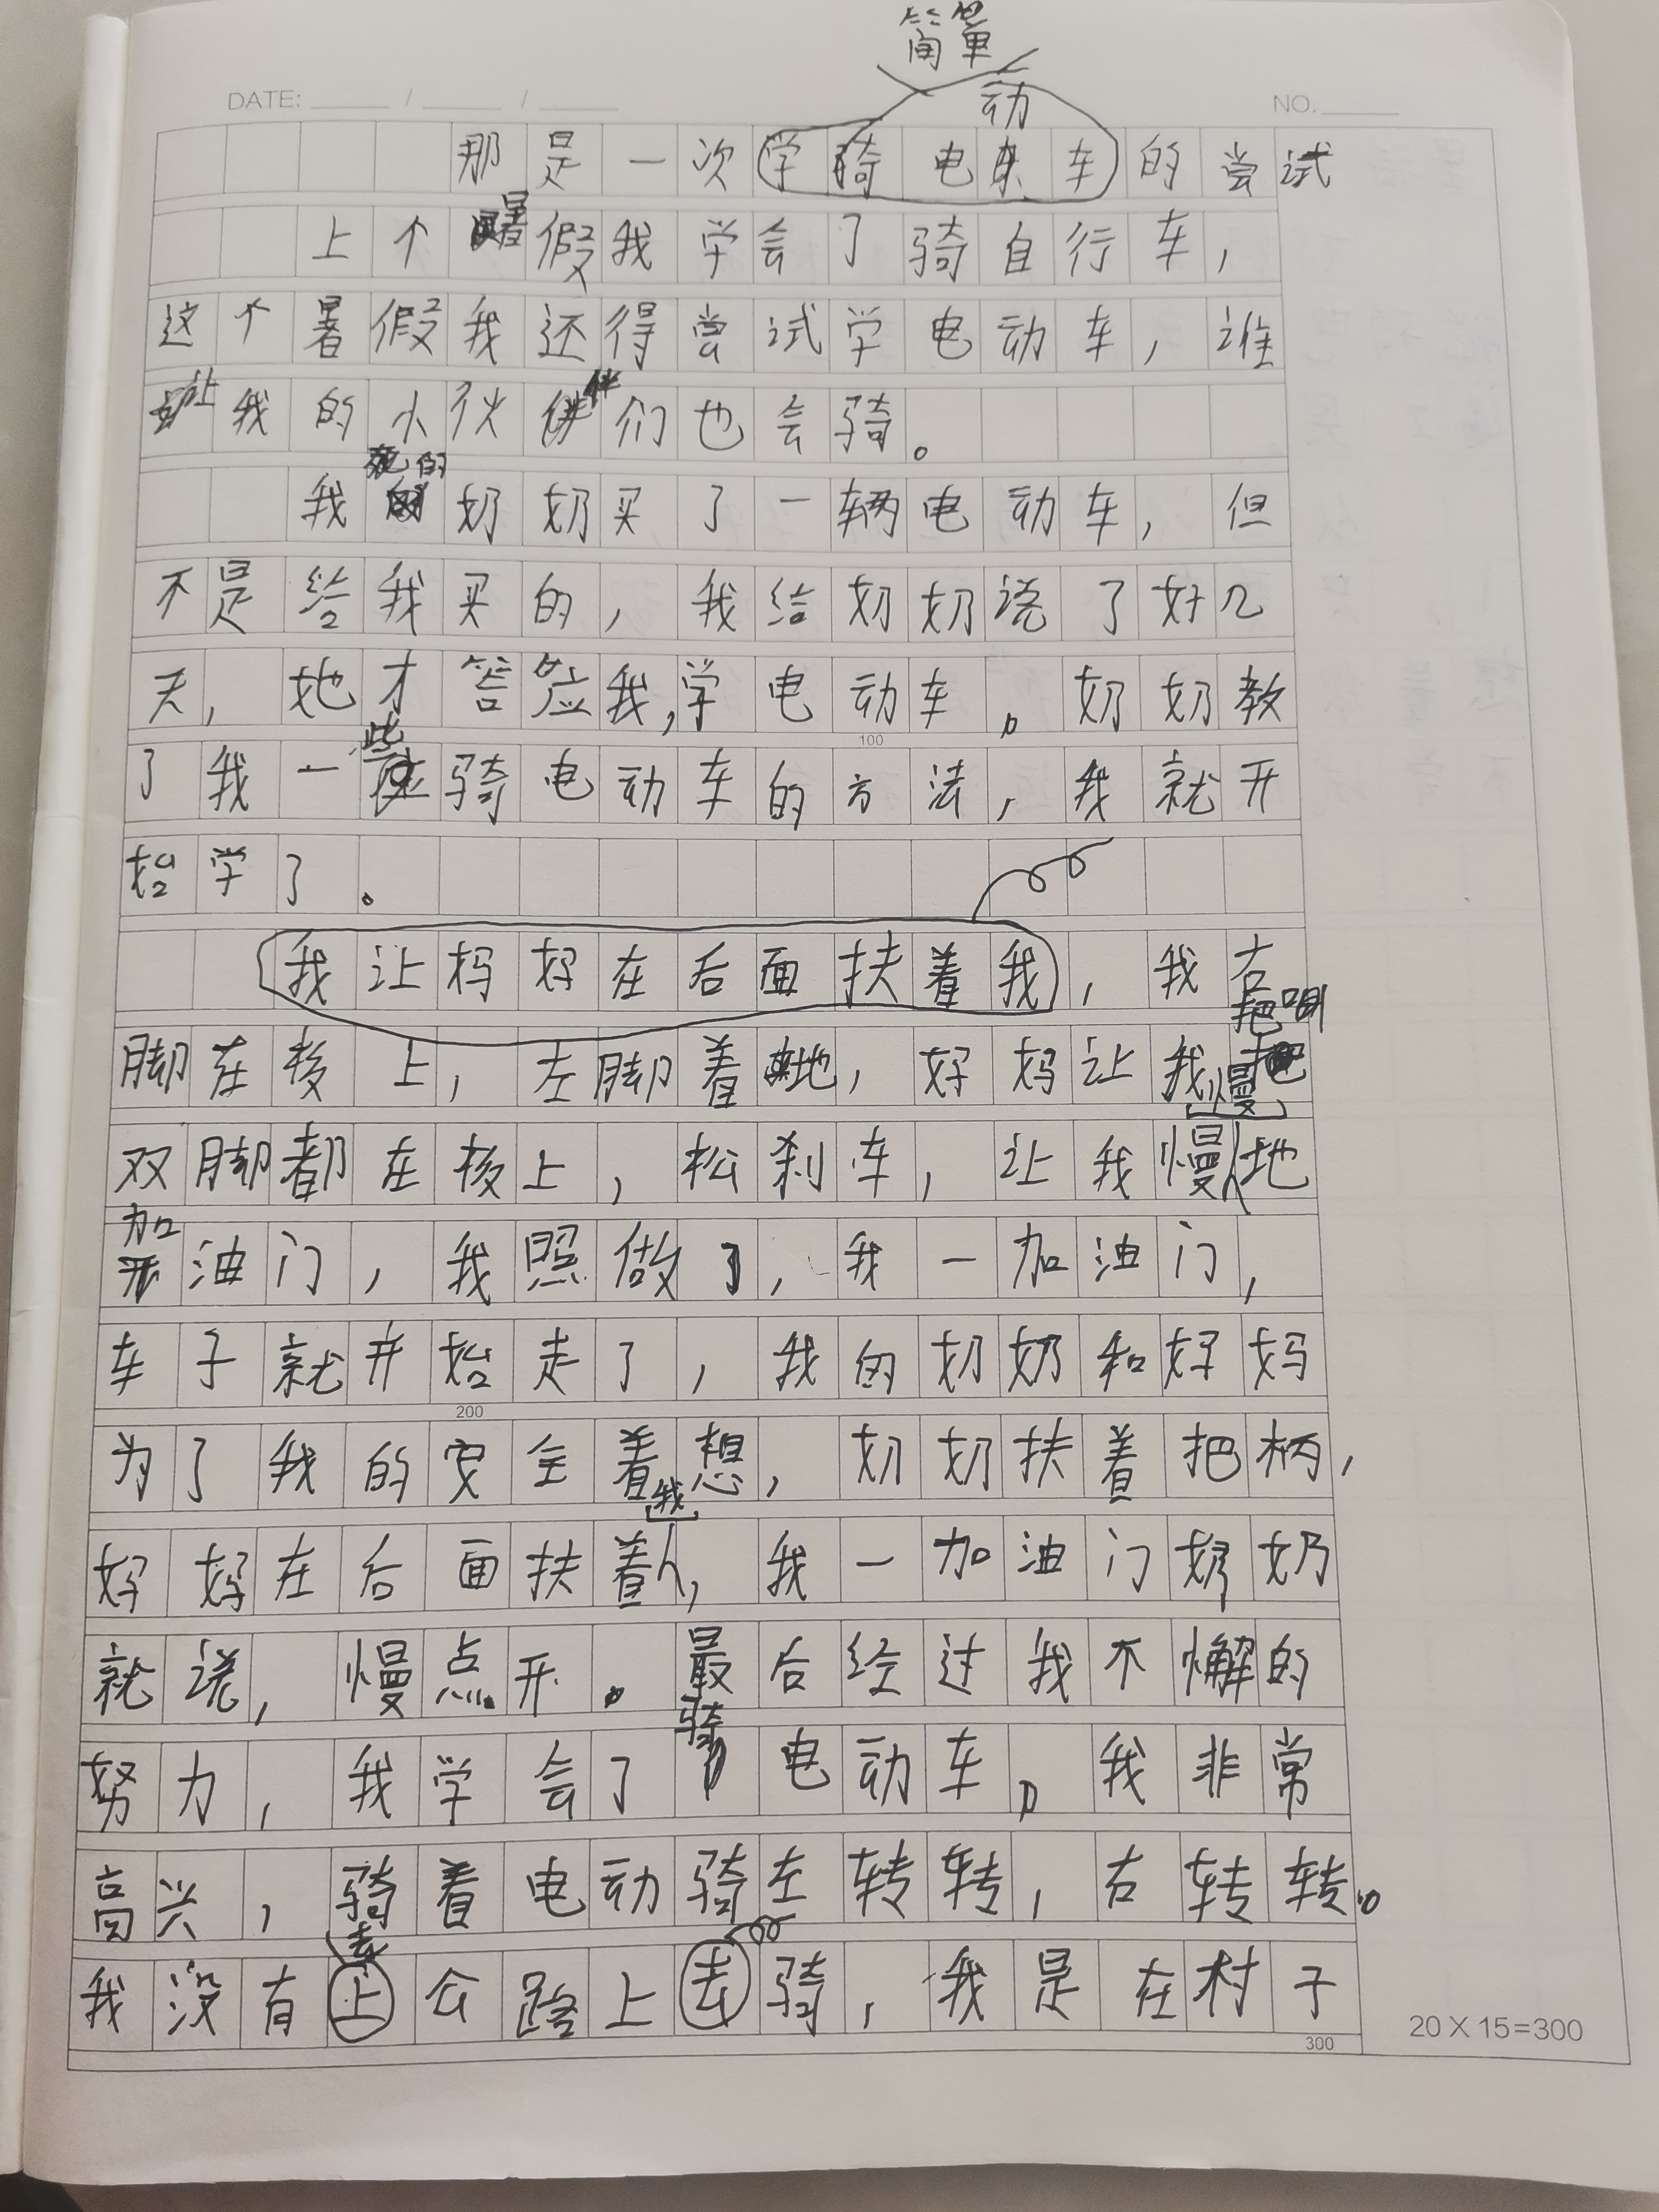 简单
DATE: / /
NO.
动
那是一次学骑电车的尝试
上个暑假我学会了骑自行车，
这个暑假我还得尝试学电动车，谁
让我的小伙伴们也会骑。
的
我奶奶买了一辆电动车，但
不是给我买的，我给奶奶说了好几
天，她才答应我，学电动车。奶奶教
100
些
了我一骑电动车的方法，我就开
始学了。
我让妈妈在后面扶着我，我右
把
脚在梭上，左脚着地，妈妈让我
慢
双脚都在梭上，松刹车，让我慢地
加
油门，我照做了，我一加油门，
车子就开始走了，我的奶奶和妈妈
200
为了我的安全着想，奶奶扶着把柄，
我
妈妈在后面扶着，我一加油门奶奶
就说，慢点开。最后经过我不懈的
骑
努力，我学会了电动车。我非常
高兴，骑着电动骑左转转，右转转。
去
我没有上公路上去骑，我是在村子
300
20 X 15=300